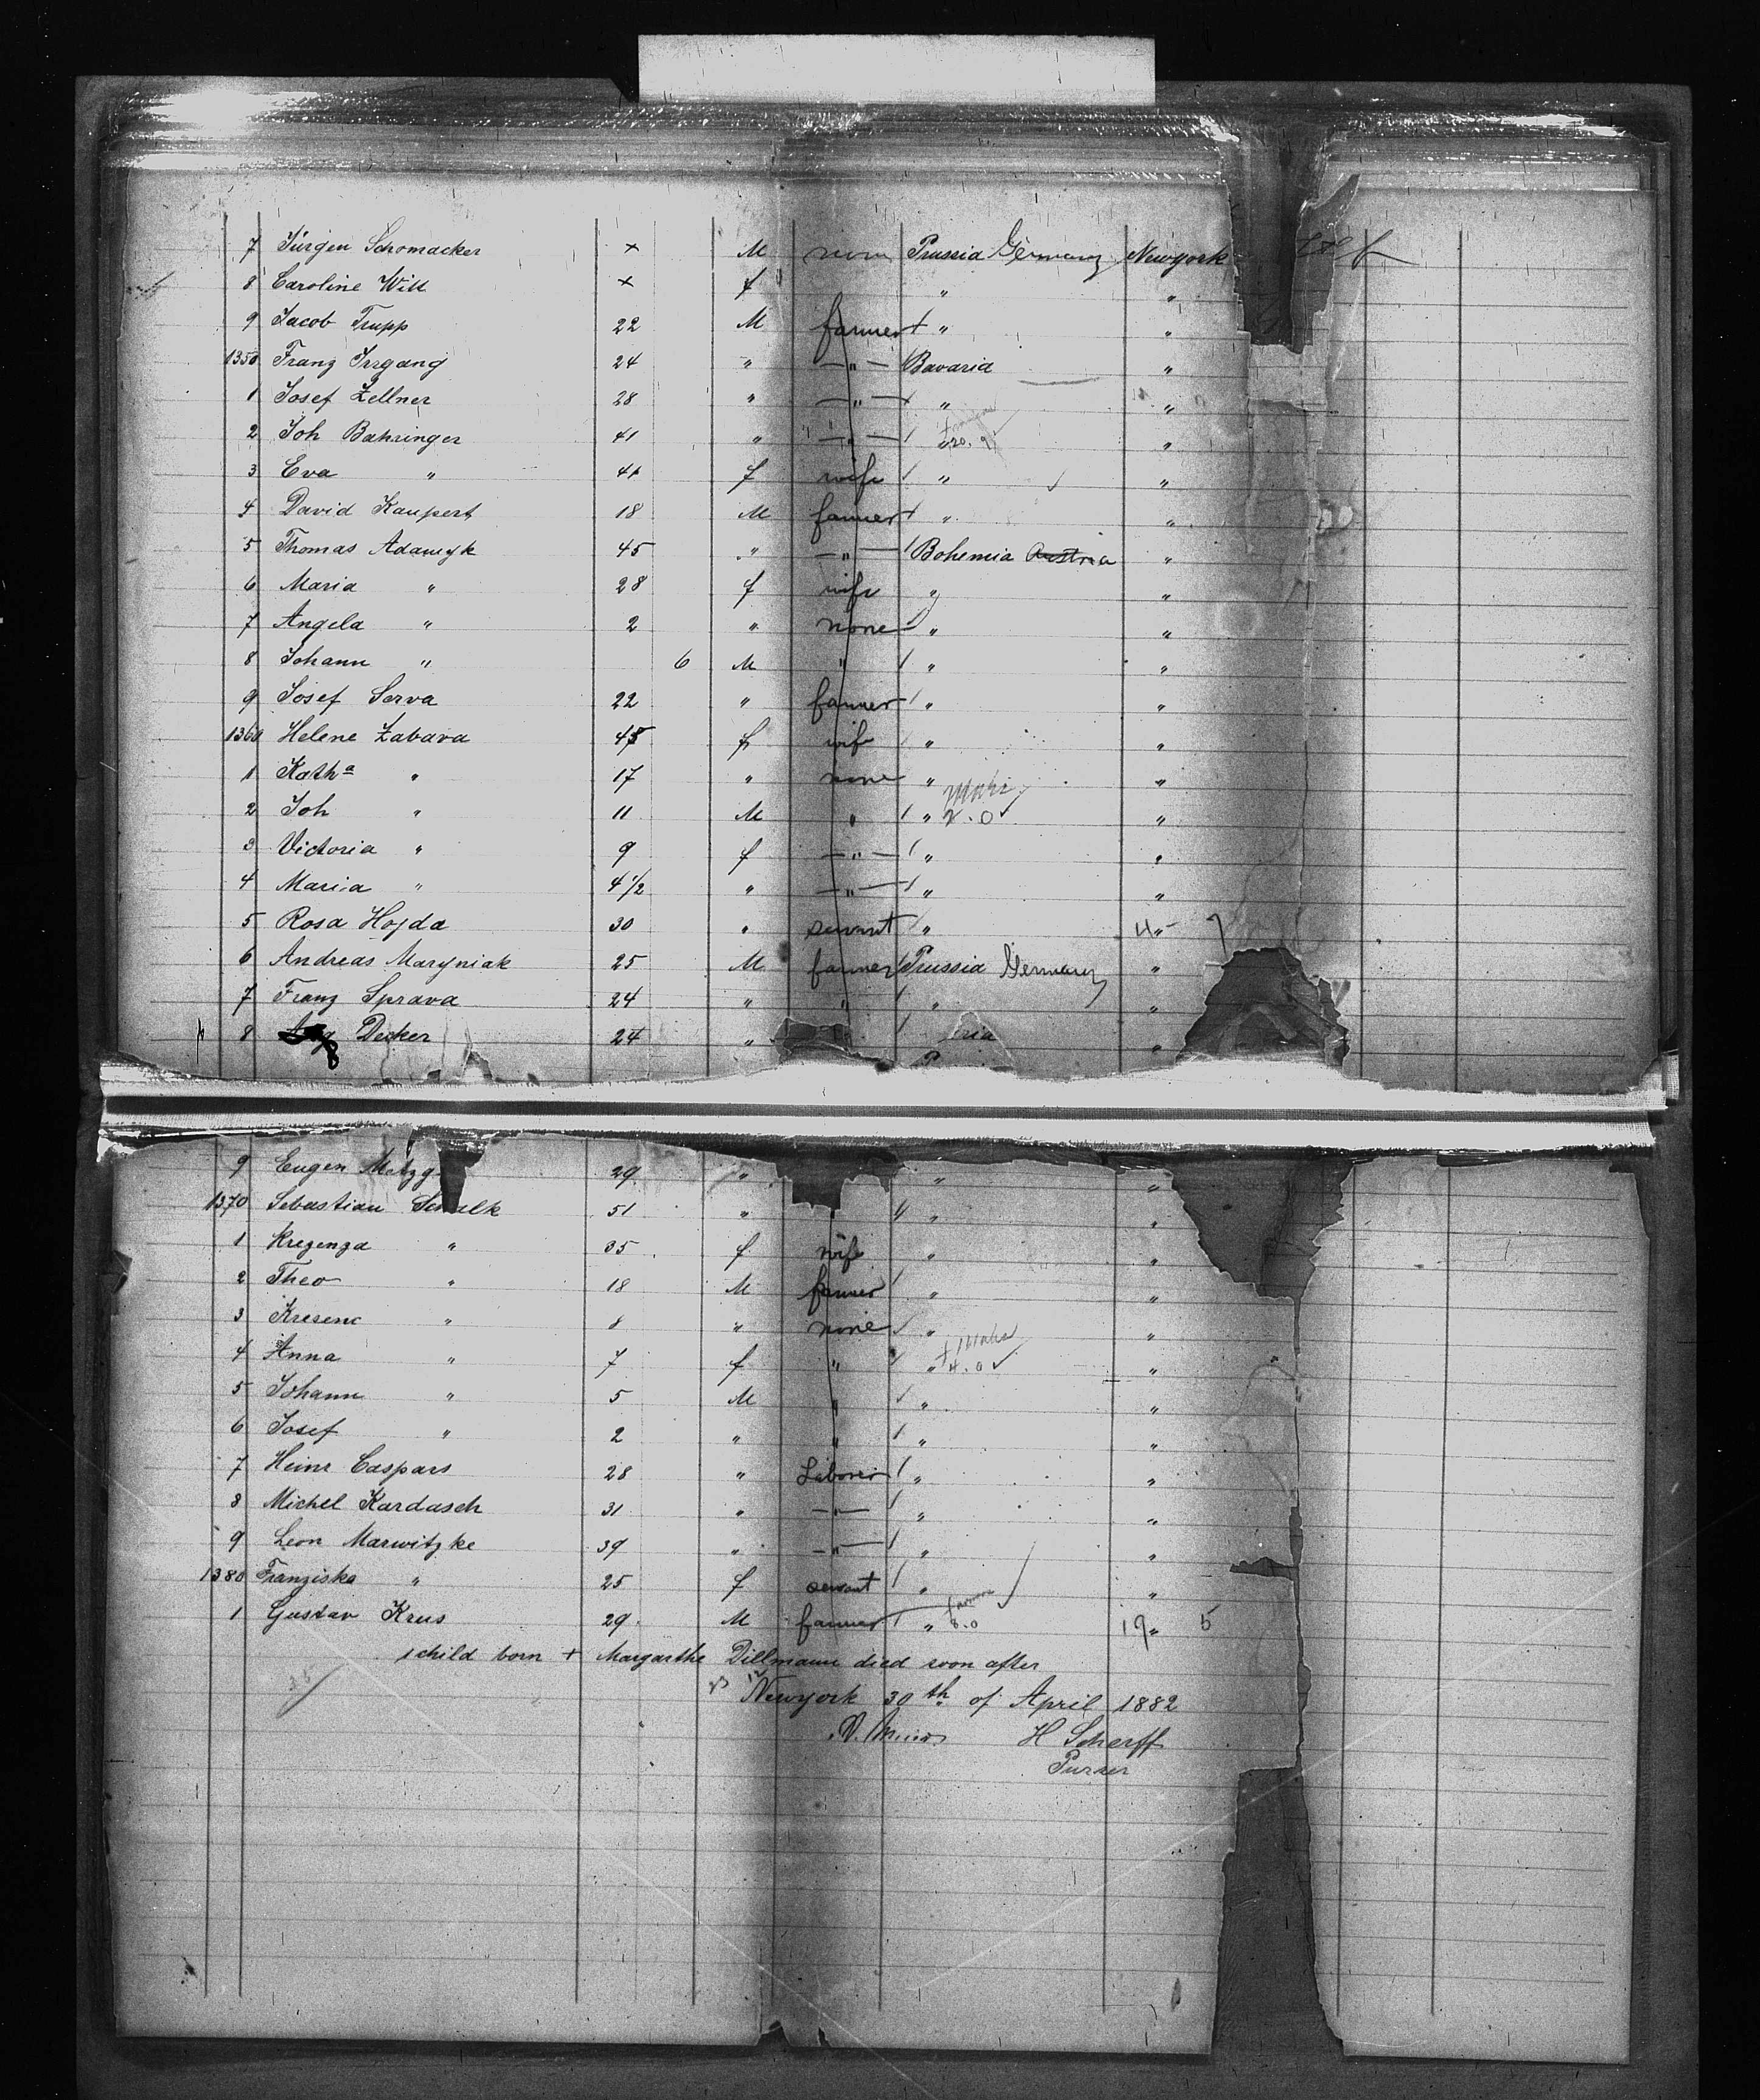 7 Jürgen Schomacker × M none Prussia Germany Newyork
8 Caroline Witt × f " "
9 Jacob Trupp 22 M farmer " "
1350 Franz Irrgang 24 " —"— Bavaria "
1 Josef Zellner 28 " —"— " "
2 Joh Bahringer 41 " —"— " 20.9 "
3 Eva " 41 f wife " "
4 David Kaupert 18 M farmer " "
5 Thomas Adamyk 45 " —"— Bohemia Austria "
6 Maria " 28 f wife " "
7 Angela " 2 " none " "
8 Johann " 6 M " " "
9 Josef Serva 22 " farmer " "
1360 Helene Zabava 45 f wife " "
1 Kath.a " 17 " none " "
2 Joh " 11 M " " 2.0 "
3 Victoria " 9 f —"— " "
4 Maria " 4 1/2 " —"— " "
5 Rosa Hojda 30 " servant " "
6 Andreas Maryniak 25 M farmer Prussia Germany "
7 Franz Sprava 24 " " " "
8 Decker 24 " ria "
9 Eugen Metzg 29 " " "
1370 Sebastian Schalk 51 " " " "
1 Kregenza " 35 f wife " "
2 Theo " 18 M farmer " "
3 Kresenc " 8 " none " "
4 Anna " 7 f " " 4.0 "
5 Johann " 5 M " " "
6 Josef " 2 " " " "
7 Heinr Caspars 28 " Laborer " "
8 Michel Kardasch 31 " —"— " "
9 Leon Marwitzke 39 " —"— " "
1380 Franziska " 25 f servant " "
1 Gustav Krus 29 M farmer " 8.0 19 " 5
1 child born + Margarthe Dillmann died soon after
Newyork 30th of April 1882
H Scherff
Purser